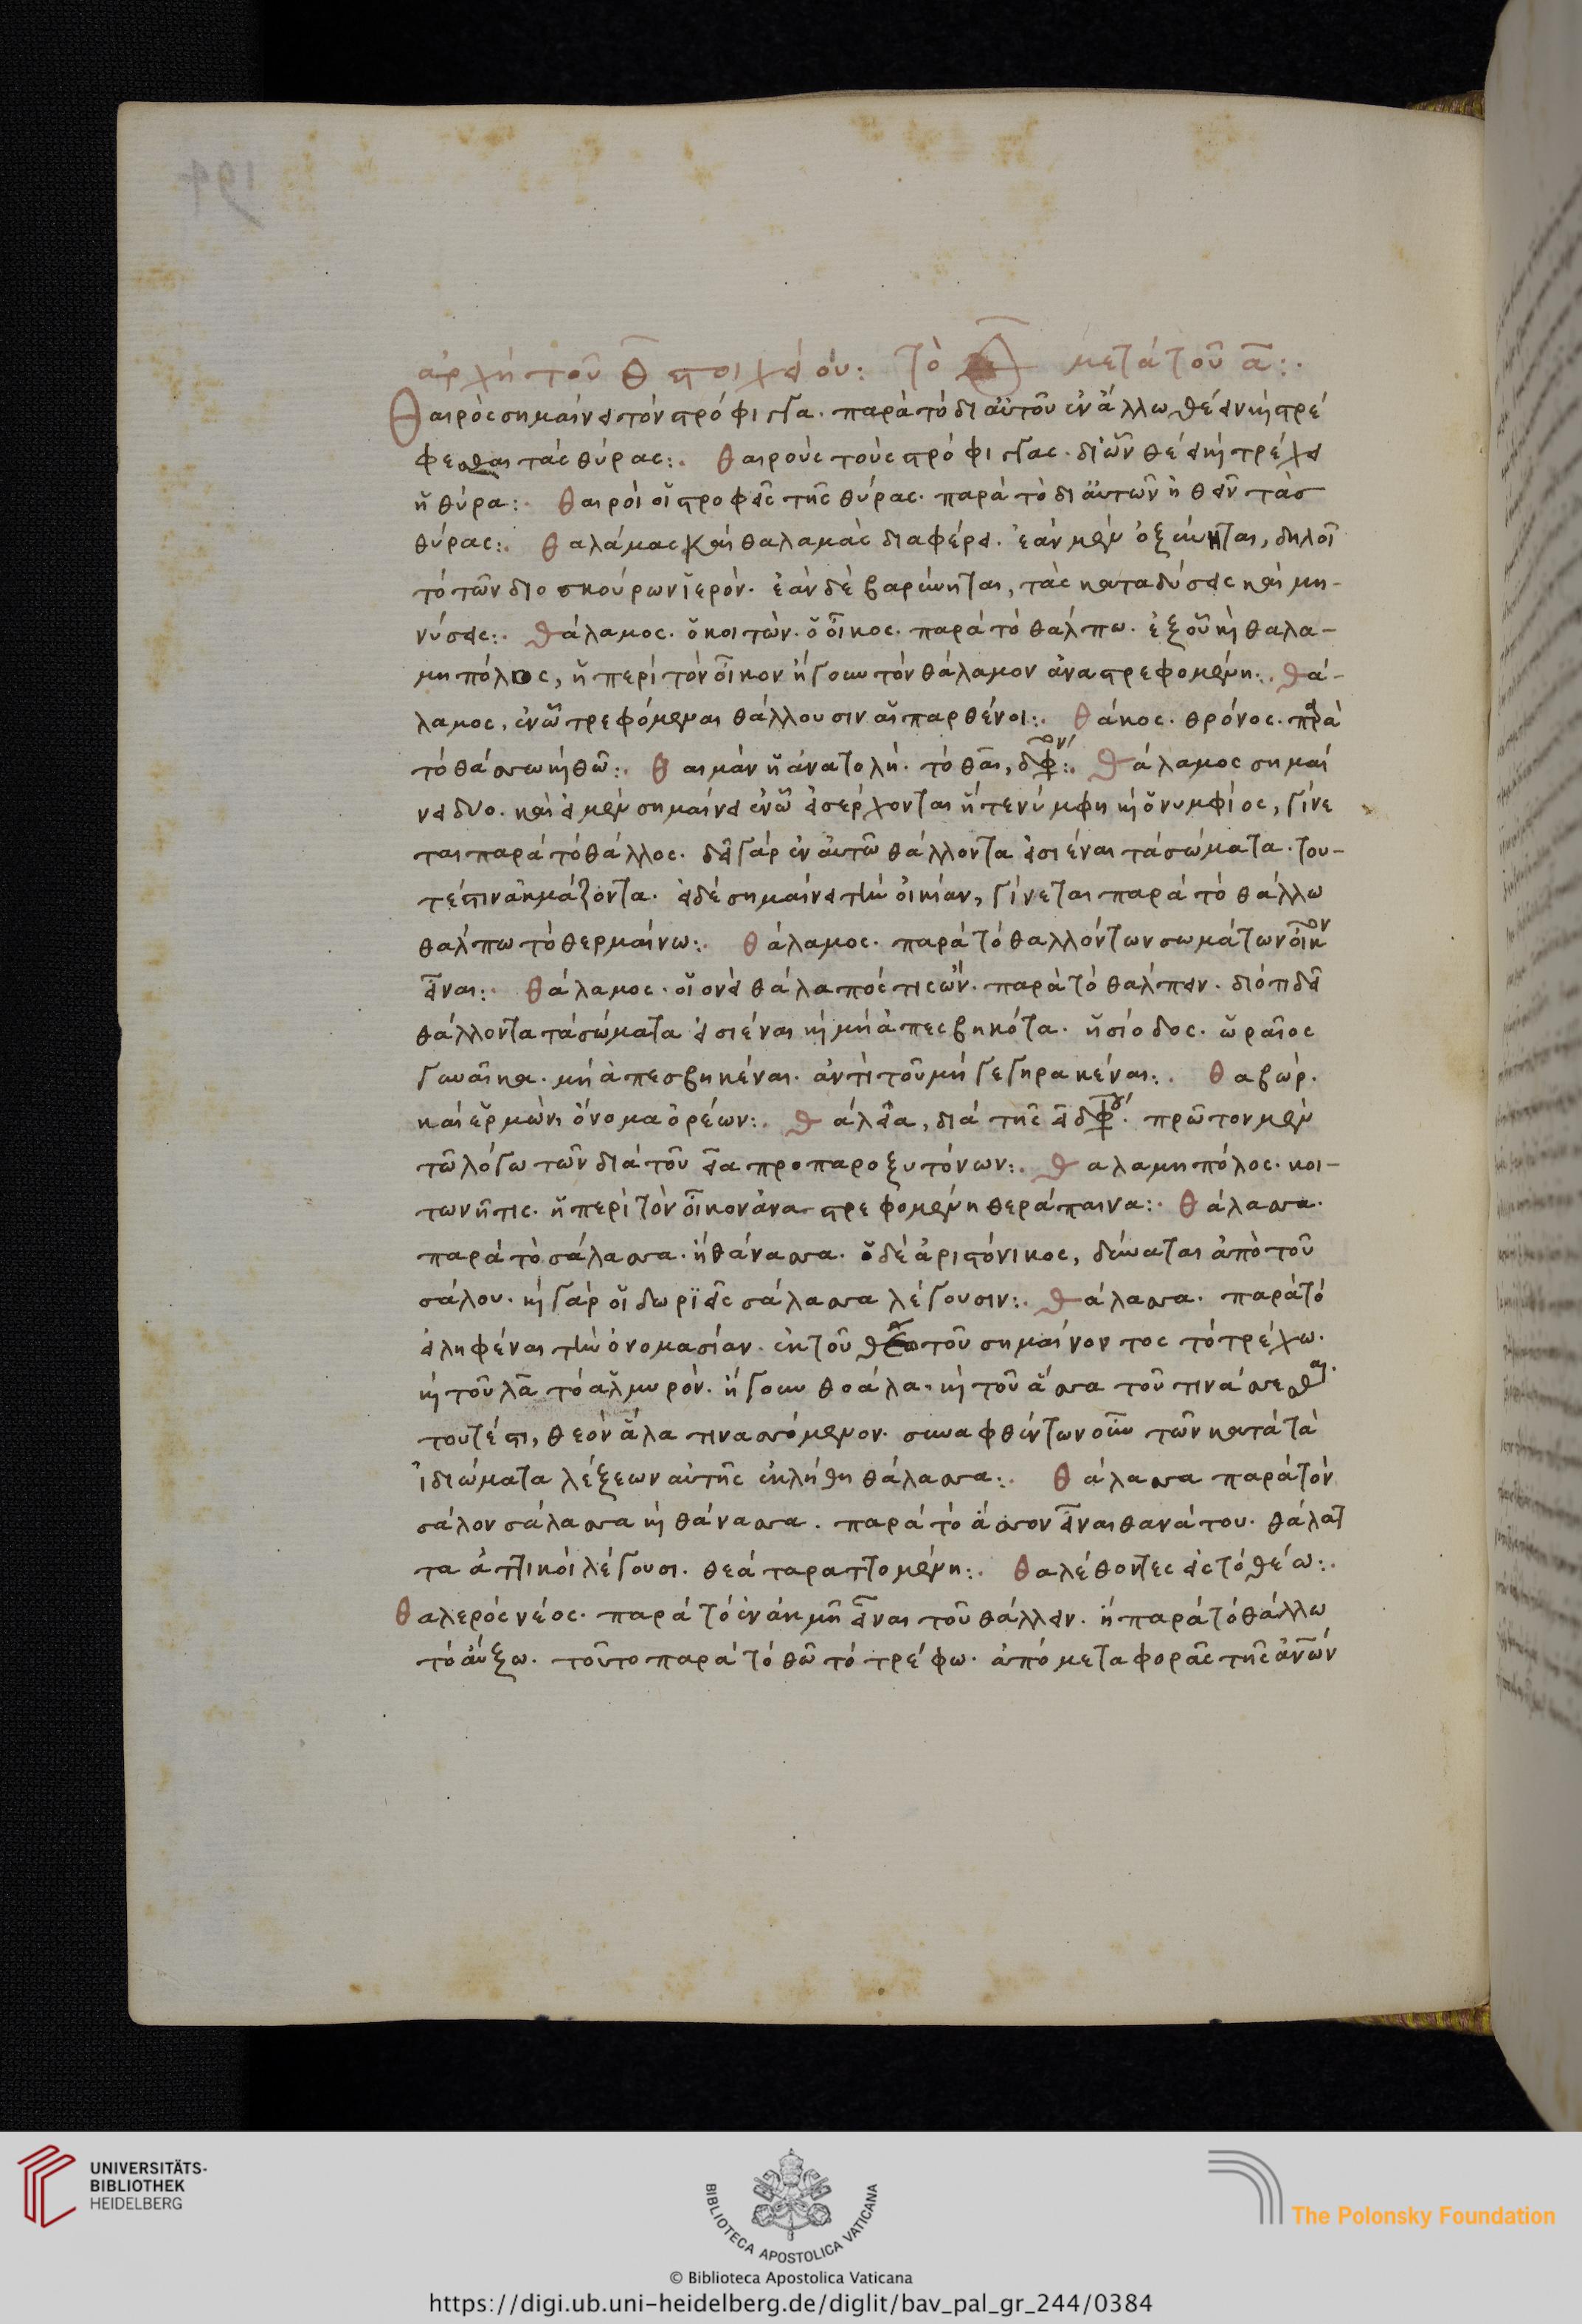 ἀρχὴ τοῦ θ στοιχείου: τὸ θ μετὰ τοῦ α:.
Θαιρὸς σημαίνει τὸν στρόφιγγα. παρὰ τὸ δι αὐτοῦ ἐν ἄλλω θέειν καὶ στρέ
φεσθαι τὰς θύρας:. θαιροὺς τοὺς στρόφιγγας. δι ὧν θέει καὶ τρέχει
ἡ θύρα:. θαιροὶ οἱ στροφεῖς τῆς θύρας. παρὰ τὸ δι αὐτῶν ἢ θεῖν τὰσ
θύρας:. θαλάμας καὶ θαλαμὰς διαφέρει. ἐὰν μὲν ὀξύνηται, δηλοῖ
τὸ τῶν διοσκούρων ἱερόν. ἐὰν δὲ βαρύνηται, τὰς καταδύσεις καὶ μη-
νύσεις:. θάλαμος. ὁ κοιτών. ὁ οἶκος. παρὰ τὸ θάλπω. ἐξ οὗ καὶ θαλα-
μηπόλος, ἡ περὶ τὸν οἶκον ἤγουν τὸν θάλαμον ἀναστρεφομένη:. θά-
λαμος, ἐν ᾧ τρεφόμεναι θάλλουσιν αἱ παρθένοι:. θάκος. θρόνος. παρὰ
τὸ θάσσω καὶ θῶ:. θαιμὰν ἡ ἀνατολή. τὸ θαι, δίφθογγον:. θάλαμος σημαί
νει δύο. καὶ εἰ μὲν σημαίνει ἐν ᾧ εἰσέρχονται ἥ τε νύμφη καὶ ὁ νυμφίος, γίνε
ται παρὰ τὸ θάλλος. δεῖ γὰρ ἐν αὐτῶ θάλλοντα εἰσιέναι τὰ σώματα. του-
τέστιν ἀκμάζοντα. εἰ δὲ σημαίνει τὴν οἰκίαν, γίνεται παρὰ τὸ θάλλω
θάλπω τὸ θερμαίνω:. θάλαμος. παρὰ τὸ θαλλόντων σωμάτων οἶκον
εἶναι:. θάλαμος. οἱονεὶ θάλαπός τις ὤν. παρὰ τὸ θάλπειν. διότι δεῖ
θάλλοντα τὰ σώματα εἰσιέναι καὶ μὴ ἀπεσβηκότα. ἡσίοδος. ὡραῖος
γυναῖκα. μὴ ἀπεσβηκέναι. ἀντὶ τοῦ μὴ γεγηρακέναι:. θαβώρ.
καὶ ἑρμὼν ὄνομα ὀρέων:. θάλεια, διὰ τῆς ει διφθόγγου. πρῶτον μὲν
τῶ λόγω τῶν διὰ τοῦ εια προπαροξυτόνων:. θαλαμηπόλος. κοι-
τωνῆτις. ἡ περὶ τὸν οἶκον ἀναστρεφομένη θεράπαινα:. θάλασσα.
παρὰ τὸ σάλασσα. ἢ θάνασσα. ὁ δὲ ἀριστόνικος, δύναται ἀπὸ τοῦ
σάλου. καὶ γὰρ οἱ δωριεῖς σάλασσα λέγουσιν:. θάλασσα. παρὰ τὸ
εἰληφέναι τὴν ὀνομασίαν. ἐκ τοῦ τοῦ σημαίνοντος τὸ τρέχω.
καὶ τοῦ λα τὸ ἁλμυρόν. ἤγουν θοάλα. καὶ τοῦ ἄσσα τοῦ τινάσσεσθαι.
τουτέστι, θεὸν ἅλα τινασσόμενον. συναφθέντων οὖν τῶν κατὰ τὰ
ἰδιώματα λέξεων αὐτῆς ἐκλήθη θάλασσα:. θάλασσα παρὰ τὸν
σάλον σάλασσα καὶ θάνασσα. παρὰ τὸ ἄσσον εἶναι θανάτου. θάλατ
τα ἀττικοὶ λέγουσι. θεὰ ταραττομένη:. θαλέθοντες εἰς τὸ θέω:.
θαλερὸς νέος. παρὰ τὸ ἐν ἀκμῆ εἶναι τοῦ θάλλειν. ἢ παρὰ τὸ θάλλω
τὸ αὔξω. τοῦτο παρὰ τὸ θῶ τὸ τρέφω. ἀπὸ μεταφορᾶς τῆς ἀνῶν
UNIVERSITÄTS-
BIBLIOTHEK
HEIDELBERG
BIBLIOTECA APOSTOLICA VATICANA
The Polonsky Foundation
© Biblioteca Apostolica Vaticana
https://digi.ub.uni-heidelberg.de/diglit/bav_pal_gr_244/0384